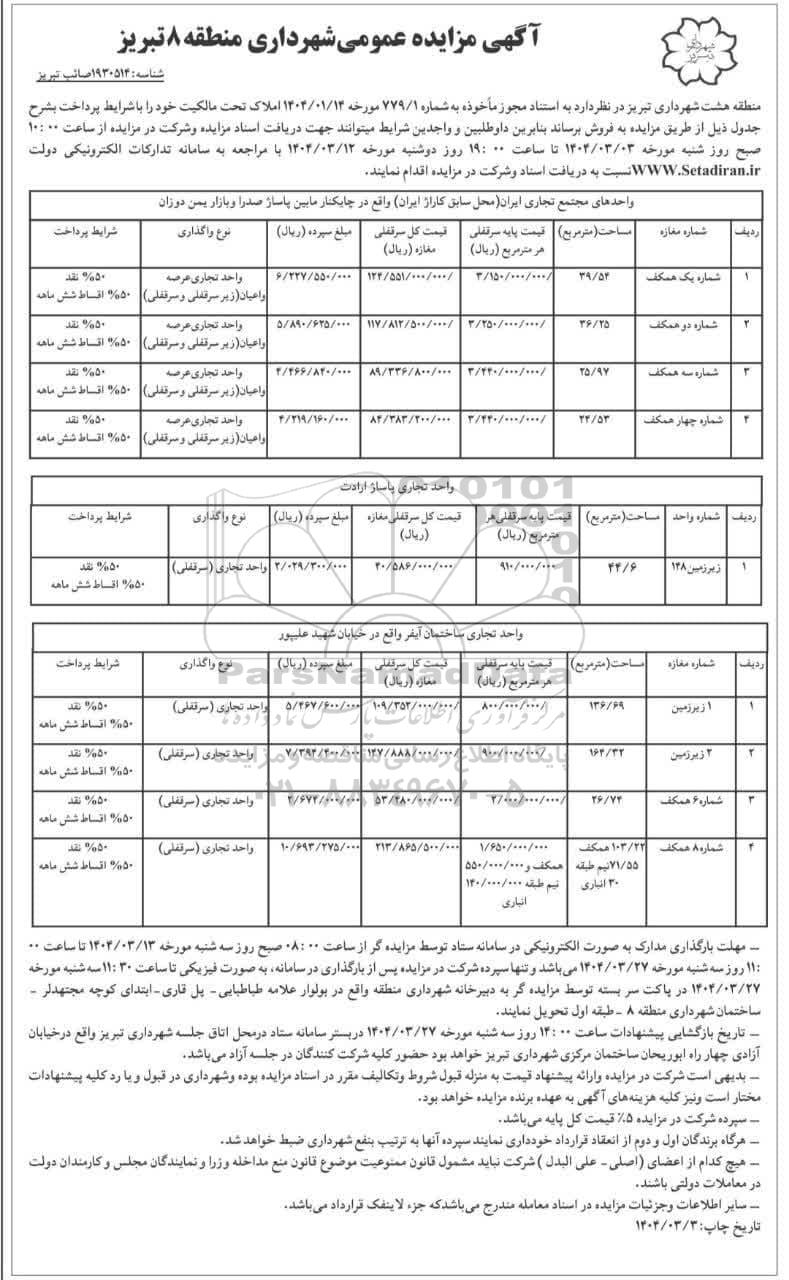 آگهی مزایده عمومی شهرداری منطقه ۸ تبریز
شهرداری تبریز
شناسه: ۱۹۳۰۵۱۴ صائب تبریز
منطقه هشت شهرداری تبریز در نظردارد به استناد مجوز مأخوذه به شماره ۷۷۹/۱ مورخه ۱۴۰۴/۰۱/۱۴ املاک تحت مالکیت خود را با شرایط پرداخت بشرح
جدول ذیل از طریق مزایده به فروش برساند بنابرین داوطلبین و واجدین شرایط میتوانند جهت دریافت اسناد مزایده وشرکت در مزایده از ساعت ۰۰ :۱۰
صبح روز شنبه مورخه ۱۴۰۴/۰۳/۰۳ تا ساعت ۰۰ :۱۹ روز دوشنبه مورخه ۱۴۰۴/۰۳/۱۲ با مراجعه به سامانه تدارکات الکترونیکی دولت
WWW.Setadiran.ir نسبت به دریافت اسناد وشرکت در مزایده اقدام نمایند.
واحدهای مجتمع تجاری ایران(محل سابق کاراژ ایران) واقع در چایکنار مابین پاساژ صدرا وبازار یمن دوزان
ردیف شماره مغازه مساحت(مترمربع) قیمت پایه سرقفلی هر مترمربع (ریال) قیمت کل سرقفلی مغازه (ریال) مبلغ سپرده (ریال) نوع واگذاری شرایط پرداخت
۱ شماره یک همکف ۳۹/۵۴ ۳/۱۵۰/۰۰۰/۰۰۰/ ۱۲۴/۵۵۱/۰۰۰/۰۰۰/ ۶/۲۲۷/۵۵۰/۰۰۰ واحد تجاری عرصه واعیان(زیر سرقفلی و سرقفلی) ۵۰% نقد ۵۰% اقساط شش ماهه
۲ شماره دو همکف ۳۶/۲۵ ۳/۲۵۰/۰۰۰/۰۰۰/ ۱۱۷/۸۱۲/۵۰۰/۰۰۰/ ۵/۸۹۰/۶۲۵/۰۰۰ واحد تجاری عرصه واعیان(زیر سرقفلی و سرقفلی) ۵۰% نقد ۵۰% اقساط شش ماهه
۳ شماره سه همکف ۲۵/۹۷ ۳/۴۴۰/۰۰۰/۰۰۰/ ۸۹/۳۳۶/۸۰۰/۰۰۰ ۴/۴۶۶/۸۴۰/۰۰۰ واحد تجاری عرصه واعیان(زیر سرقفلی و سرقفلی) ۵۰% نقد ۵۰% اقساط شش ماهه
۴ شماره چهار همکف ۲۴/۵۳ ۳/۴۴۰/۰۰۰/۰۰۰/ ۸۴/۳۸۳/۲۰۰/۰۰۰ ۴/۲۱۹/۱۶۰/۰۰۰ واحد تجاری عرصه واعیان(زیر سرقفلی و سرقفلی) ۵۰% نقد ۵۰% اقساط شش ماهه
واحد تجاری پاساژ ارادت
ردیف شماره واحد مساحت(مترمربع) قیمت پایه سرقفلی هر مترمربع (ریال) قیمت کل سرقفلی مغازه (ریال) مبلغ سپرده (ریال) نوع واگذاری شرایط پرداخت
۱ زیرزمین ۱۴۸ ۴۴/۶ ۹۱۰/۰۰۰/۰۰۰ ۴۰/۵۸۶/۰۰۰/۰۰۰ ۲/۰۲۹/۳۰۰/۰۰۰ واحد تجاری (سرقفلی) ۵۰% نقد ۵۰% اقساط شش ماهه
واحد تجاری ساختمان آیفر واقع در خیابان شهید علیپور
ردیف شماره مغازه مساحت(مترمربع) قیمت پایه سرقفلی هر مترمربع (ریال) قیمت کل سرقفلی مغازه (ریال) مبلغ سپرده (ریال) نوع واگذاری شرایط پرداخت
۱ ۱ زیرزمین ۱۳۶/۶۹ ۸۰۰/۰۰۰/۰۰۰/ ۱۰۹/۳۵۲/۰۰۰/۰۰۰/ ۵/۴۶۷/۶۰۰/۰۰۰ واحد تجاری (سرقفلی) ۵۰% نقد ۵۰% اقساط شش ماهه
۲ ۲ زیرزمین ۱۶۴/۳۲ ۹۰۰/۰۰۰/۰۰۰/ ۱۴۷/۸۸۸/۰۰۰/۰۰۰/ ۷/۳۹۴/۴۰۰/۰۰۰ واحد تجاری (سرقفلی) ۵۰% نقد ۵۰% اقساط شش ماهه
۳ شماره ۶ همکف ۲۶/۷۴ ۲/۰۰۰/۰۰۰/۰۰۰/ ۵۳/۴۸۰/۰۰۰/۰۰۰/ ۲/۶۷۴/۰۰۰/۰۰۰ واحد تجاری (سرقفلی) ۵۰% نقد ۵۰% اقساط شش ماهه
۴ شماره ۸ همکف ۱۰۳/۲۲ همکف ۷۱/۵۵ نیم طبقه ۳۰ انباری ۱/۶۵۰/۰۰۰/۰۰۰ همکف و ۵۵۰/۰۰۰/۰۰۰ نیم طبقه ۱۴۰/۰۰۰/۰۰۰ انباری ۲۱۳/۸۶۵/۵۰۰/۰۰۰ ۱۰/۶۹۳/۲۷۵/۰۰۰ واحد تجاری (سرقفلی) ۵۰% نقد ۵۰% اقساط شش ماهه
ParsNamadData
مرکز فرآوری اطلاعات پارس نماد داده ها
پایگاه اطلاع رسانی مناقصه و مزایده
۰۲۱-۸۸۳۴۹۶۷۰-۵
ـ مهلت بارگذاری مدارک به صورت الکترونیکی در سامانه ستاد توسط مزایده گر از ساعت ۰۰ :۰۸ صبح روز سه شنبه مورخه ۱۴۰۴/۰۳/۱۳ تا ساعت ۰۰
:۱۱ روز سه شنبه مورخه ۱۴۰۴/۰۳/۲۷ می‌باشد و تنها سپرده شرکت در مزایده پس از بارگذاری در سامانه، به صورت فیزیکی تا ساعت ۳۰ :۱۱ سه شنبه مورخه
۱۴۰۴/۰۳/۲۷ در پاکت سر بسته توسط مزایده گر به دبیرخانه شهرداری منطقه واقع در بولوار علامه طباطبایی- پل قاری-ابتدای کوچه مجتهدلر -
ساختمان شهرداری منطقه ۸ -طبقه اول تحویل نمایند.
ـ تاریخ بازگشایی پیشنهادات ساعت ۰۰ :۱۴ روز سه شنبه مورخه ۱۴۰۴/۰۳/۲۷ دربستر سامانه ستاد درمحل اتاق جلسه شهرداری تبریز واقع درخیابان
آزادی چهار راه ابوریحان ساختمان مرکزی شهرداری تبریز خواهد بود حضور کلیه شرکت کنندگان در جلسه آزاد می‌باشد.
ـ بدیهی است شرکت در مزایده وارائه پیشنهاد قیمت به منزله قبول شروط وتکالیف مقرر در اسناد مزایده بوده وشهرداری در قبول و یا رد کلیه پیشنهادات
مختار است ونیز کلیه هزینه‌های آگهی به عهده برنده مزایده خواهد بود.
ـ سپرده شرکت در مزایده ۵٪ قیمت کل پایه می‌باشد.
ـ هرگاه برندگان اول و دوم از انعقاد قرارداد خودداری نمایند سپرده آنها به ترتیب بنفع شهرداری ضبط خواهد شد.
ـ هیچ کدام از اعضای (اصلی- علی البدل ) شرکت نباید مشمول قانون ممنوعیت موضوع قانون منع مداخله وزرا و نمایندگان مجلس و کارمندان دولت
در معاملات دولتی باشند.
ـ سایر اطلاعات وجزئیات مزایده در اسناد معامله مندرج می‌باشدکه جزء لاینفک قرارداد می‌باشد.
تاریخ چاپ: ۱۴۰۴/۰۳/۳